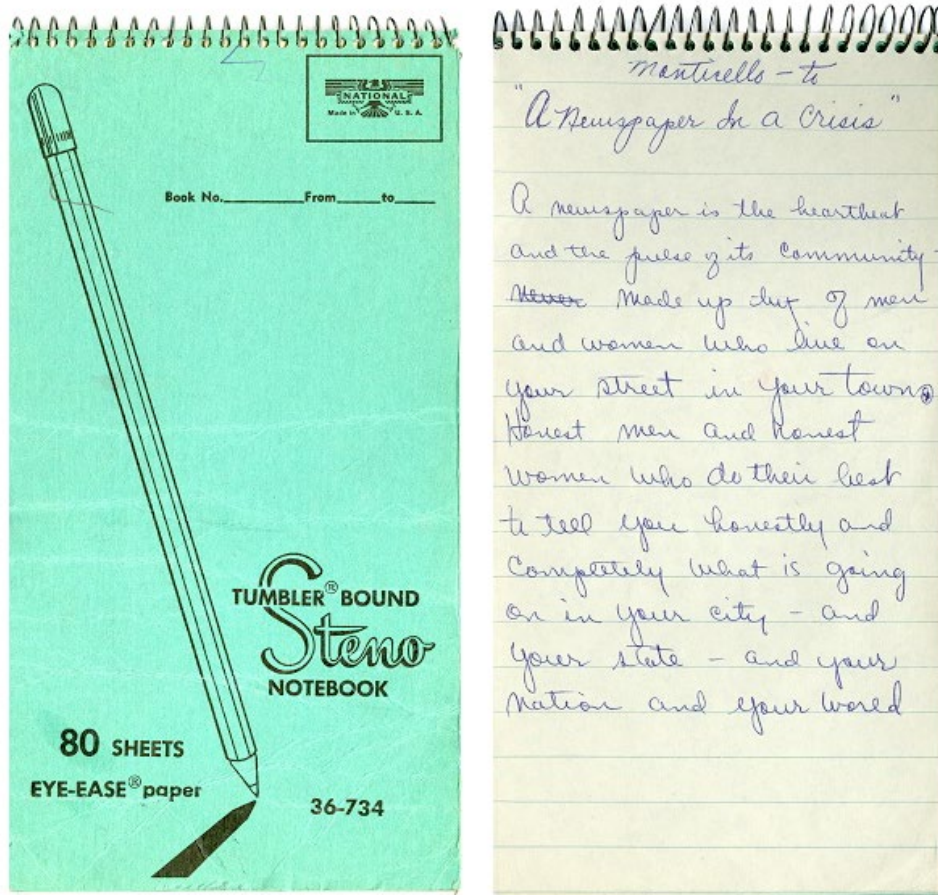 NATIONAL
Made in U. S. A.
Book No. From to
TUMBLER® BOUND
Steno
NOTEBOOK
80 SHEETS
EYE-EASE® paper
36-734
Monticello – to
"A Newspaper In a Crisis"
A newspaper is the heartbeat
and the pulse of its community –
made up of men
and women who live on
your street in your town.
Honest men and honest
women who do their best
to tell you honestly and
completely what is going
on in your city – and
your state – and your
nation and your world